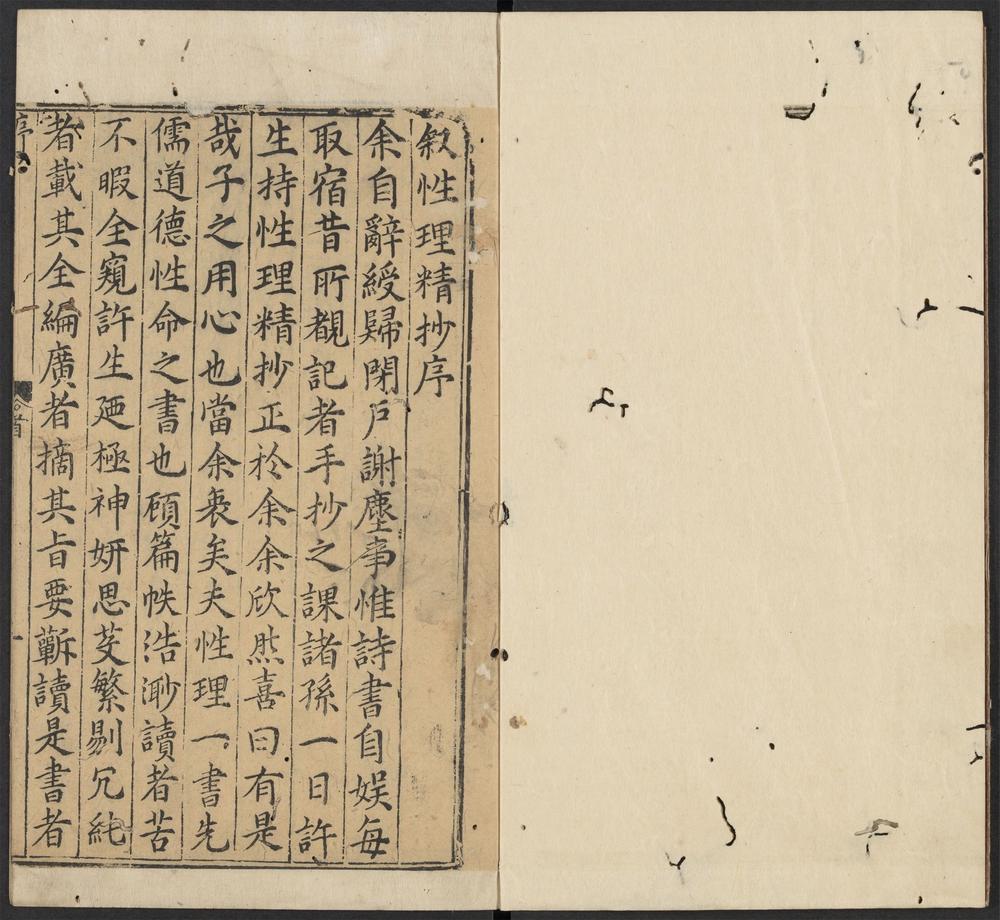 叙性理精抄序
余自辭綬歸閉戶謝塵事惟詩書自娱每
取宿昔所覩記者手抄之課諸孫一日許
生持性理精抄正扵余余欣然喜曰有是
哉子之用心也當余衰矣夫性理一書先
儒道德性命之書也顧篇帙浩渺讀者苦
不暇全窺許生廼極神妍思芟繁剔冗純
者載其全編廣者摘其旨要蘄讀是書者
序
卷首